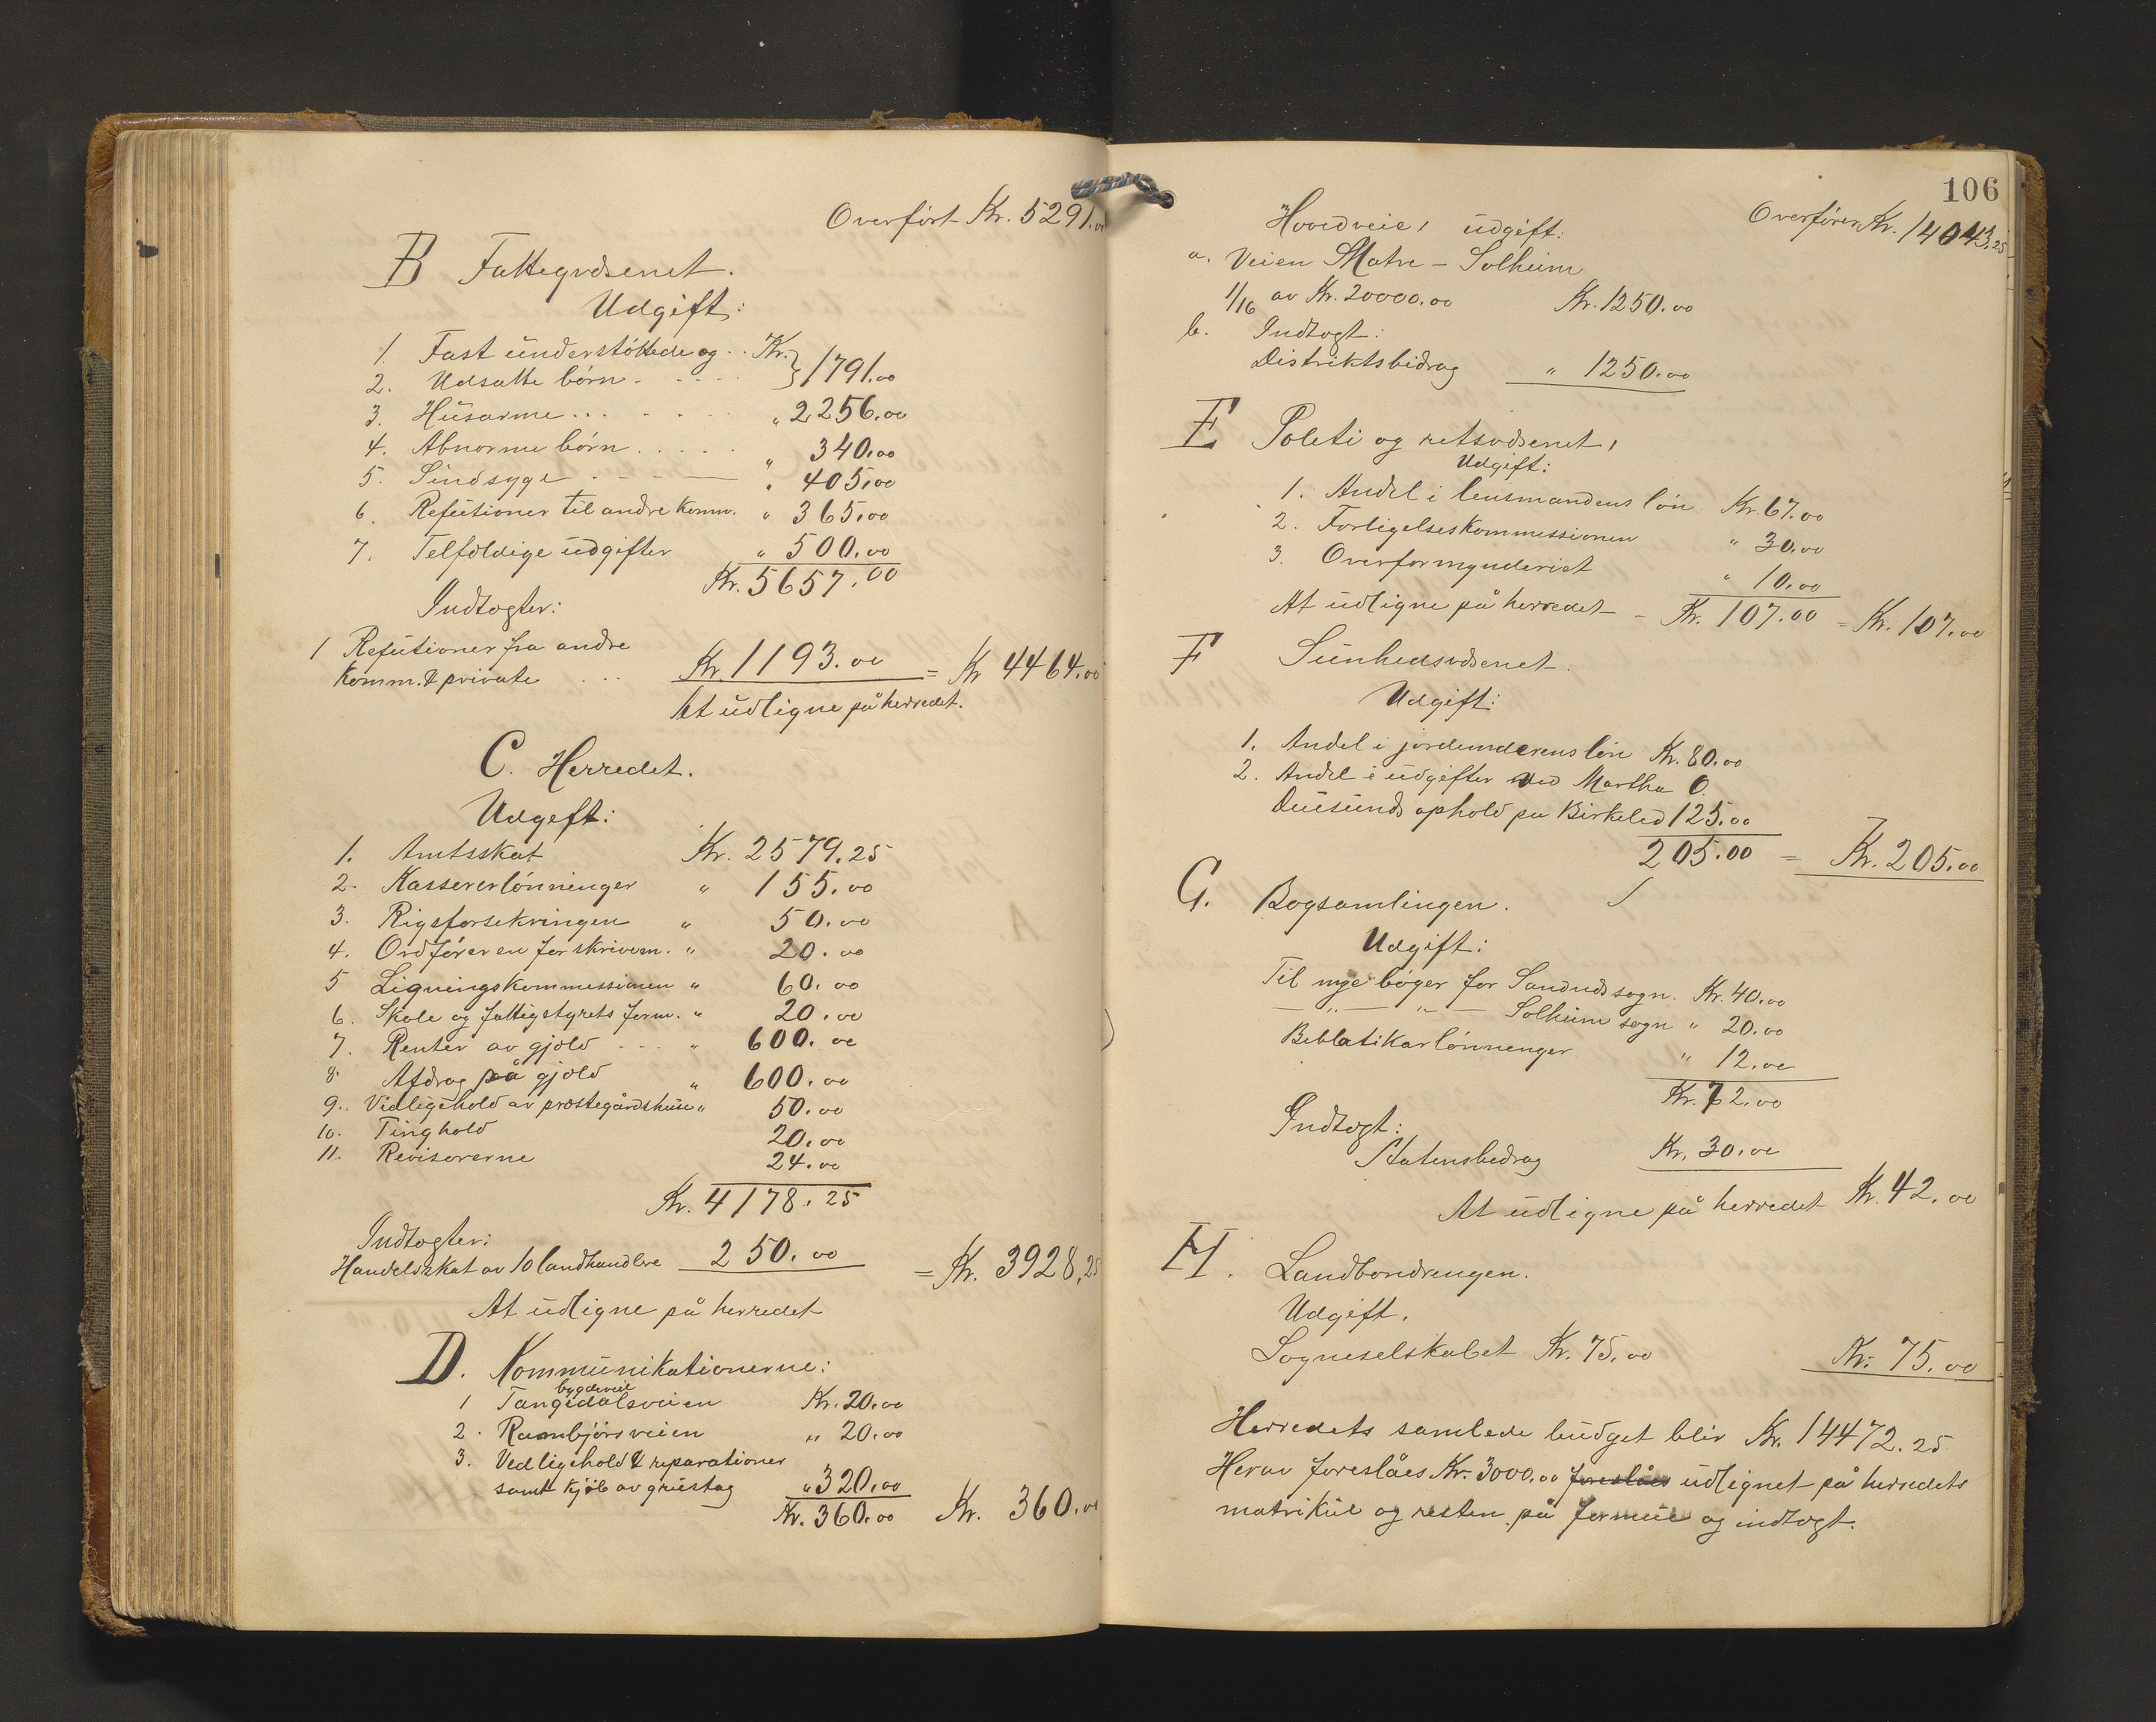 Overført Kr. 5291.00
B Fattigvæsenet.
Udgift:
1. Fast understøttede og . . Kr. } 1791.00
2. Udsatte børn . . . . .
3. Husarme . . . . . . „ 2256.00
4. Abnorme børn . . . . . „ 340.00
5. Sindsyge . . . . „ 405.00
6. Refusioner til andre komm. „ 365.00
7. Telfældige udgifter „ 500.00
Kr. 5657.00
Indtægter:
1 Refusioner fra andre
Komm. & private . . . Kr. 1193.00 = Kr 4464.00
At udligne på herredet.
C. Herredet.
Udgift:
1. Amtsskat Kr. 2579.25
2. Kassererlønninger „ 155.00
3. Rigsforsekringen „ 50.00
4. Ordføreren for skrivem. „ 20.00
5 Ligningskommissionen „ 60.00
6. Skole og fattigstyrets form. „ 20.00
7. Renter av gjæld . . . „ 600.00
8. Afdrag på gjæld „ 600.00
9. Vedligehold av præstegårdshuse „ 50.00
10. Tinghold 20.00
11. Revisorerne 24.00
Kr. 4178.25
Indtægter:
Handelsskat av 10 landhandlere 250.00 = Kr. 3928,25
At udligne på herredet
D. Kommunikationerne:
bygdevei
1 Tangedalsveien Kr. 20.00
2. Rambjörsveien „ 20.00
3. Vedligehold & reparationer
samt kjöb av grustag „ 320.00
Kr. 360.00 Kr. 360.00
106
Overføres Kr. 14043.25
Hovedveie, udgift:
a. Veien Matre – Solheim
1/16 av Kr. 20000.00 Kr. 1250.00
b. Indtægt:
Distriktsbidrag „ 1250.00
E Politi og retsvæsenet,
Udgift:
1. Andel i lensmandens løn Kr. 67.00
2. Forligelseskommissionen „ 30.00
3. Overformynderiet „ 10.00
At udligne på herredet – Kr. 107.00 = Kr. 107.00
F Sunhedsvæsenet.
Udgift:
1. Andel i jordemoderens løn Kr. 80.00
2. Andel i udgifter ved Martha O.
ophold på Birkeled 125.00
205.00 = Kr. 205.00
G. Bogsamlingen.
Udgift:
Til nye bøger for Sandnes sogn. Kr. 40.00
— „ — „ — Solheim sogn „ 20.00
Beblatikarlønnenger „ 12.00
Kr. 72.00
Indtægt:
Statensbedrag Kr. 30.00
At udligne på herredet Kr. 42.00
H. Landbondrengen.
Udgift.
Sogneselskabet Kr. 75.00 Kr. 75.00
Herredets samlede budget blir Kr. 14472.25
Herav foreslåes Kr. 3000.00 foreslåes udlignet på herredets
matrikul og resten på formue og indtægt.